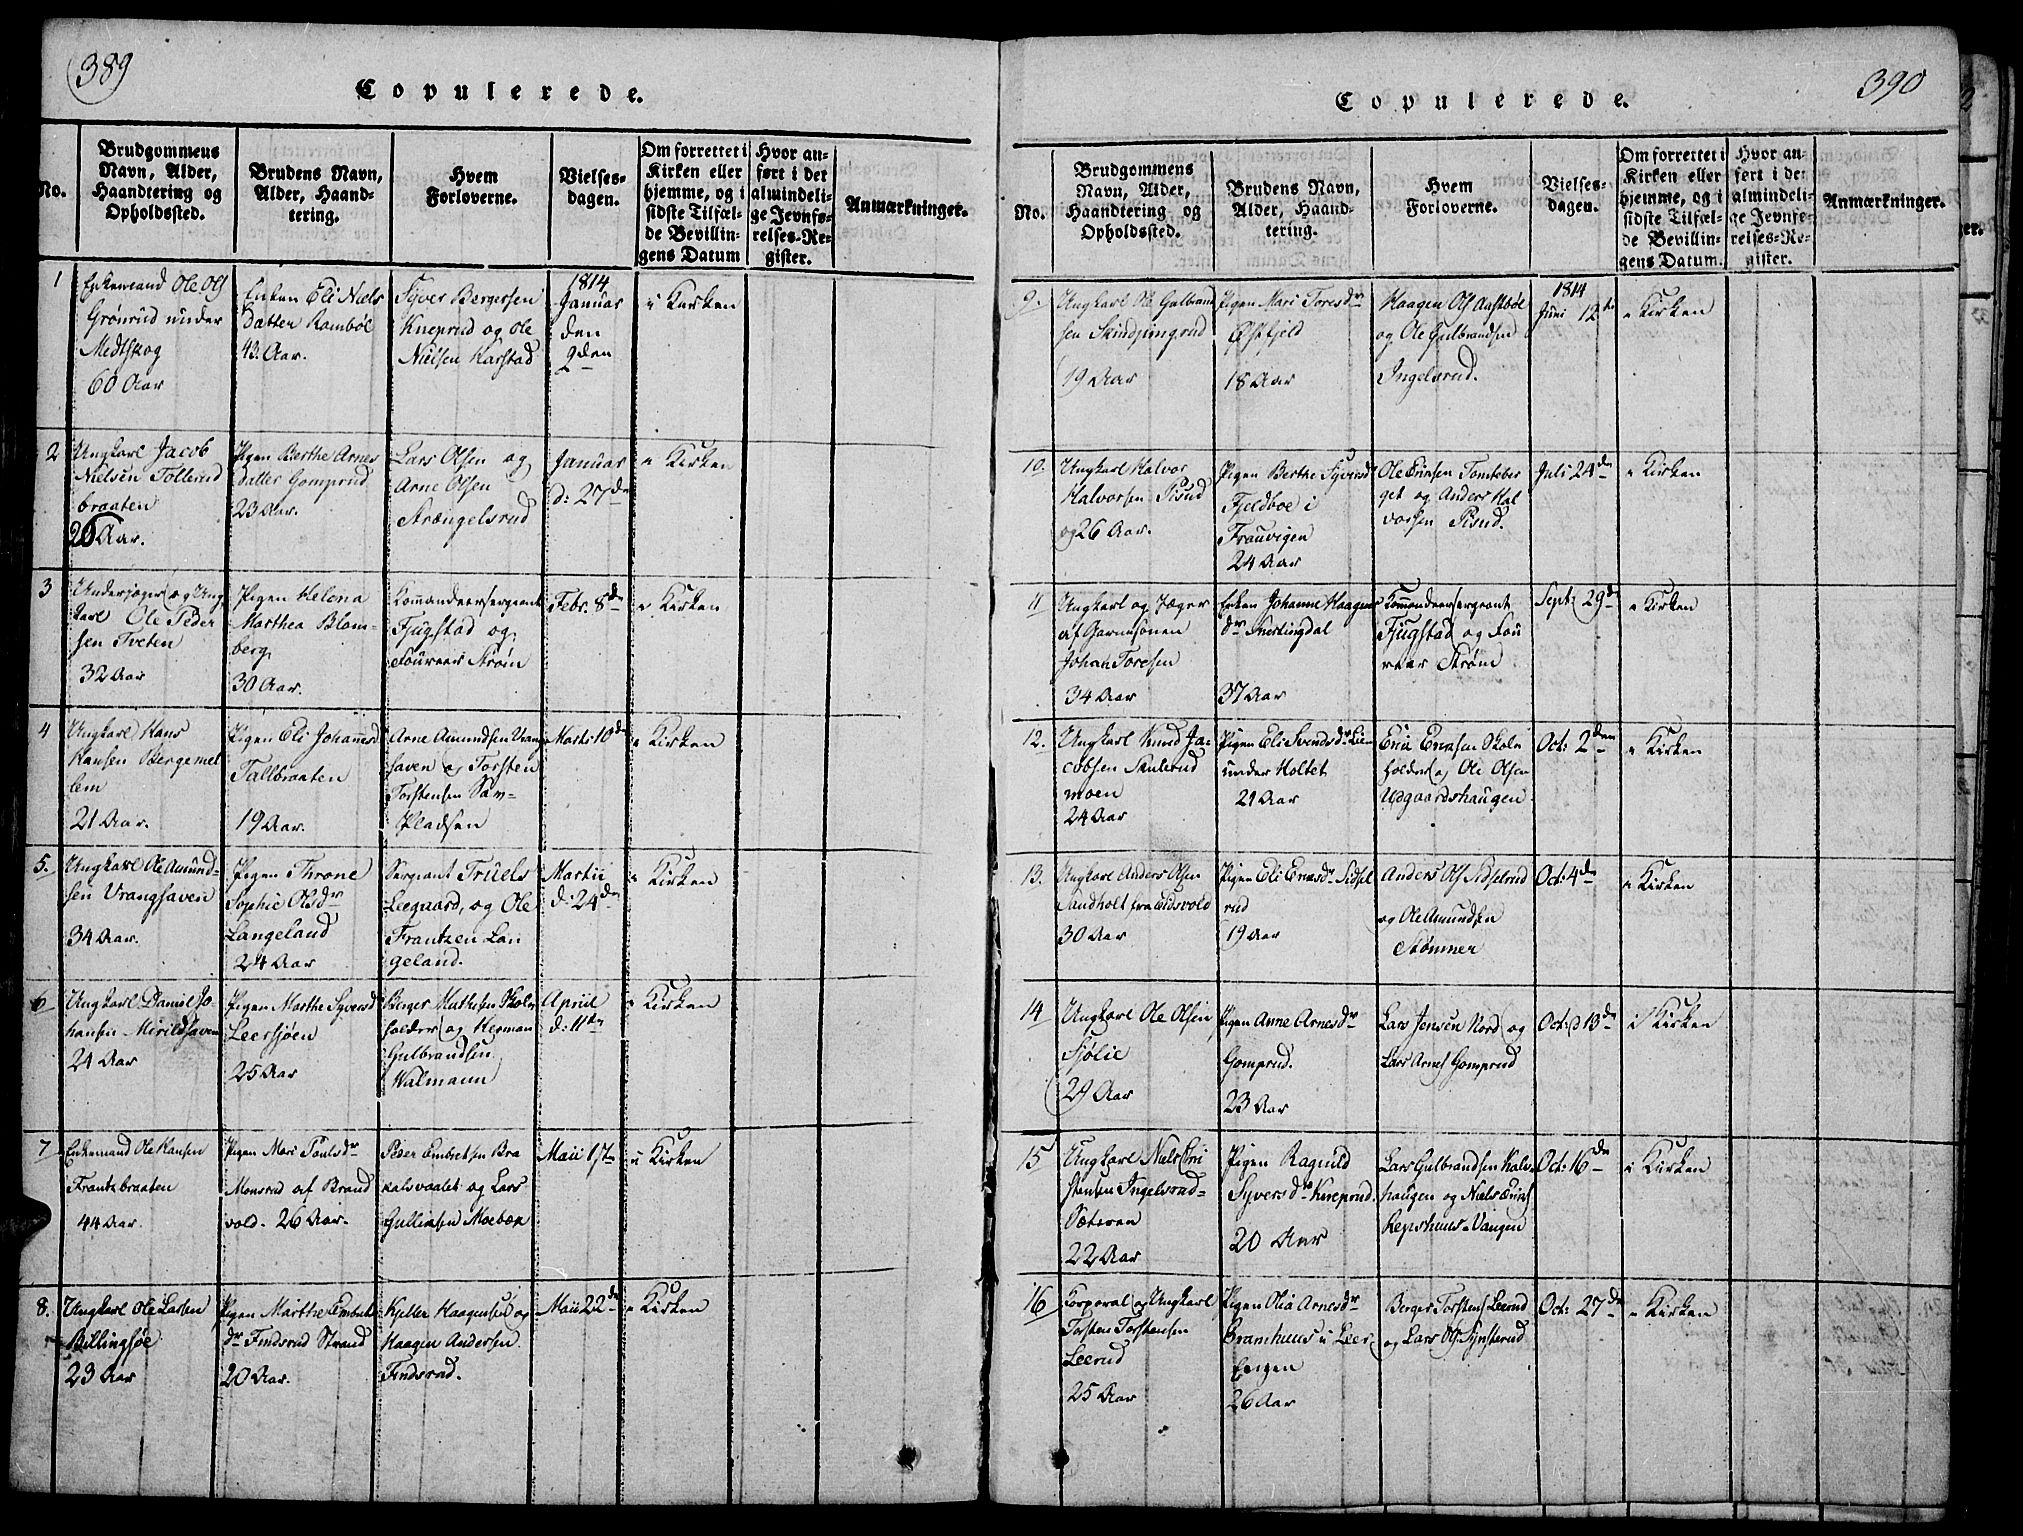 389
Copulerede.
No.
Brudgommens Navn, Alder, Haandtering og Opholdssted.
Brudens Navn, Alder, Haandtering.
Hvem Forloverne.
Vielsesdagen.
Om forrettet i Kirken eller hjemme, og i sidste Tilfælde Bevillingens Datum
Hvor anført i det almindelige Jevnførelses-Register.
Anmærkninger.
1
Enkemand Ole Ols
Grönrud under
Medskog
60 Aar
Enken Eli Niels
datter Ramböl
43 Aar.
Syver Bergersen
Kneprud og Ole
Nielsen Karstad
1814
Januar
den
9den
i Kirken
2
Ungkarl Jacob
Nielsen Tollerud
braaten
26 Aar.
Pigen Berthe Arnes
datter Gomprud
23 Aar.
Lars Olsen og
Arne Olsen
Strængelsrud
Januar
d: 27de
i Kirken
3
Underjæger og Ung
karl Ole Peder
sen Tveten
32 Aar
Pigen Helena
Marthea Blom-
berg
30 Aar.
Kommandeersergeant
Fjugstad og
Foureer Ström
Febr. 8de
i Kirken
4
Ungkarl Hans
Hansen Bergemel
lem
21 Aar.
Pigen Eli Johannesd
Tallbraaten
19 Aar.
Arne Amundsen Vrang
saven og Torsten
Torstensen Sav-
Pladsen
Marti: 10de
i Kirken
5.
Ungkarl Ole Amund-
sen Vrangsaven
34 Aar.
Pigen Throne
Sophie Olsdr
Langeland
24 Aar
Sergeant Truels
Liegaard, og Ole
Frantzen Lan
geland.
Martii
d: 24de
i Kirken
6
Ungkarl Daniel Jo-
hansen Mirildsaven
24 Aar
Pigen Marthe Syversd
Leersjöen
25 Aar
Berger Mathisen Skole
holder og Herman
Gulbrandsen
Walmann
April
d: 11de
i Kirken
7
Enkemand Ole Hansen
Frantzbraaten
44 Aar.
Pigen Mari Poulsdr
Monsrud af Brand
vold. 26 Aar.
Peder Embretsen Bra
kalsvaalet og Lars
Gulliksen Moebæk
Maii 17de
i Kirken
8.
Ungkarl Ole Larsen
Billingsöe
23 Aar
Pigen Marthe Embret
dr Findsrud Strand
20 Aar.
Kjetter Haagensen og
Haagen Andersen
Findsrud.
Maii 22de
i Kirken
390
Copulerede.
No.
Brudgommens Navn, Alder, Haandtering og Opholdssted.
Brudens Navn, Alder, Haandtering.
Hvem Forloverne.
Vielsesdagen.
Om forrettet i Kirken eller hjemme, og i sidste Tilfælde Bevillingens Datum.
Hvor anført i det almindelige Jevnførelses-Register.
Anmærkninger.
9.
Ungkarl Ole Gulbrand
sen Skindpungrud
19 Aar
Pigen Mari Toresdr
Østfjeld
18 Aar
Haagen Ols Aastböl
og Ole Gulbrandsen
Ingelsrud.
1814
Juni 12te
i Kirken
10.
Ungkarl Halvor
Halvorsen Pisud
og 26 Aar.
Pigen Berthe Syversd
Fjeldboe i
Trauvigen
24 Aar
Ole Ersen Tomteber
get og Anders Hal
vorsen Pisud.
Juli 24de
i Kirken
11
Ungkarl og Jæger
af Garnisonen
Johan Toresen
34 Aar
Enken Johanne Haagens
dr Kertingdal
37 Aar
Kommandeersergeant
Fjugstad og Fou
reer Ström
Sept: 29de
i Kirken
12.
Ungkarl Knud Ja-
cobsen Skulerud
moen
24 Aar
Pigen Eli Svendsdr Lie
under Holtet
21 Aar
Eric Ersen Skole
holder og Ole Olsen
Udgaardshaugen
Oct: 2den
i Kirken
13.
Ungkarl Anders Olsen
Sandholt fra Eidsvold
30 Aar
Pigen Eli Ersdr Sidsel
rud
19 Aar
Anders Ols Sidselrud
og Ole Amundsen
Stömner
Oct: 4de
i Kirken
14
Ungkarl Ole Olsen
Sjölie
29 Aar
Pigen Anne Arnesdr
Gomprud.
23 Aar
Lars Jensen Nord og
Lars Arnes Gomprud
Oct: d 13de
i Kirken
15
Ungkarl Niels Cri
stensen Ingelsrud-
Sæteren
22 Aar
Pigen Ragnild
Syversdr Kneprud.
20 Aar
Lars Gulbrandsen Kals
haugen og Niels Erics
Lepshuus-Vangen
Oct: 16de
i Kirken
16
Korporal og Ungkarl
Torsten Torstensen
Leerud
25 Aar
Pigen Olia Arnesdr
Bramhuus i Leer
Engen
26 Aar
Berger Torstens Leerud
og Lars Ols Synsterud
Oct: 27de
i Kirken